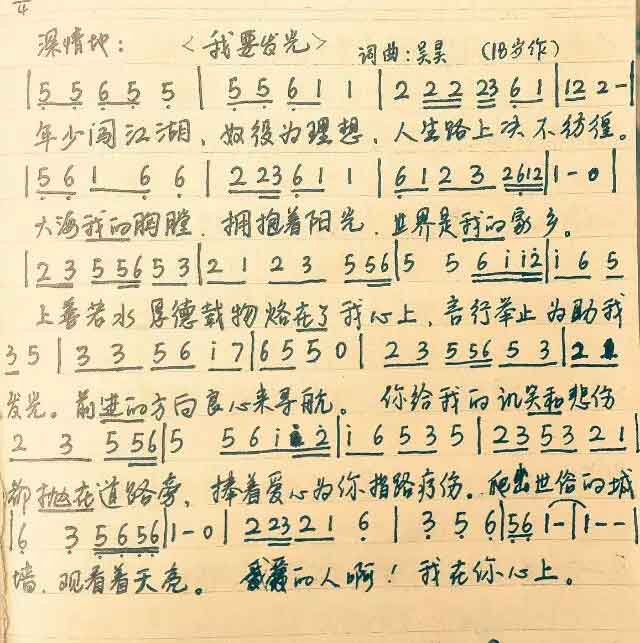 4
深情地： <我要发光> 词曲：吴昊 （18岁作）
|5 5 6 5 5 | 5 5 6 1 1 | 2 2 2 23 6 1 |12 2-|
年少闯江湖，奴役为理想，人生路上决不彷徨。
|5 6 1 6 6 | 2 23 6 1 1 | 6 1 2 3 2612|1-0|
大海我的胸膛，拥抱着阳光，世界是我的家乡。
|2 3 5 56 5 3|2 1 2 3 5 56|5 5 6 i i2|i 6 5
上善若水 厚德载物烙在了我心上，言行举止为助我
3 5 | 3 3 5 6 i 7|6 5 5 0 | 2 3 5 56 5 3 |2 1
发光。前进的方向良心来导航。 你给我的讥笑和悲伤
2 3 5 56|5 5 6 i 2|i 6 5 3 5 | 2 3 5 3 2 1|
都抛在道路旁，捧着爱心为你指路疗伤。爬出世俗的城
|6 3 5 6 5 6|1-0| 2 23 2 1 6 | 3 5 6|56 1-|1--|
墙，观看着天亮。 的人啊！我在你心上。